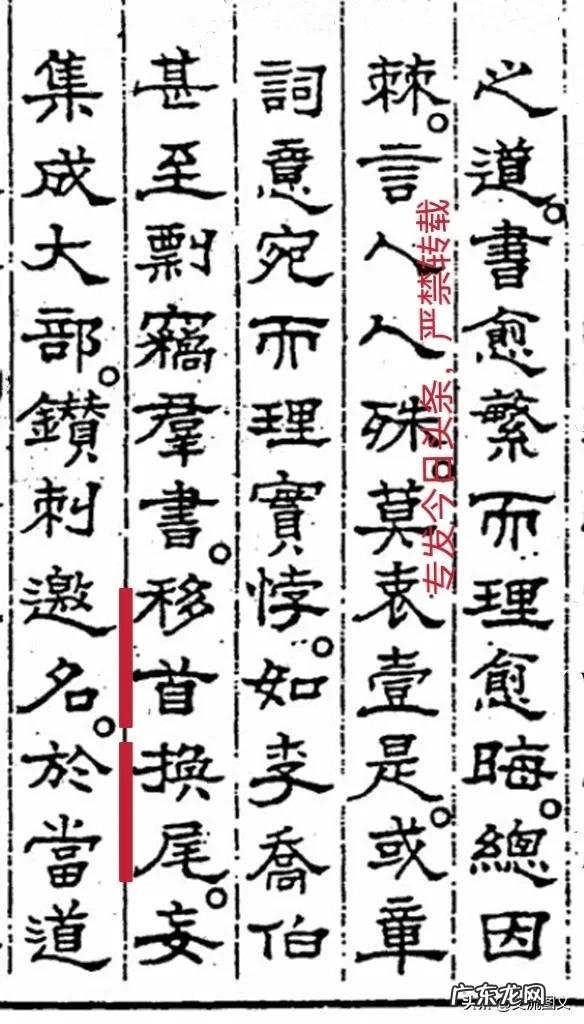 之道。書愈繁而理愈晦。總因
棘。言人人殊。莫衷壹是。或章
詞意宛而理實悖。如李喬伯
甚至剽竊羣書。移首換尾。妄
集成大部。鑽刺邀名。於當道
专发今日头条，严禁转载
广东龙网